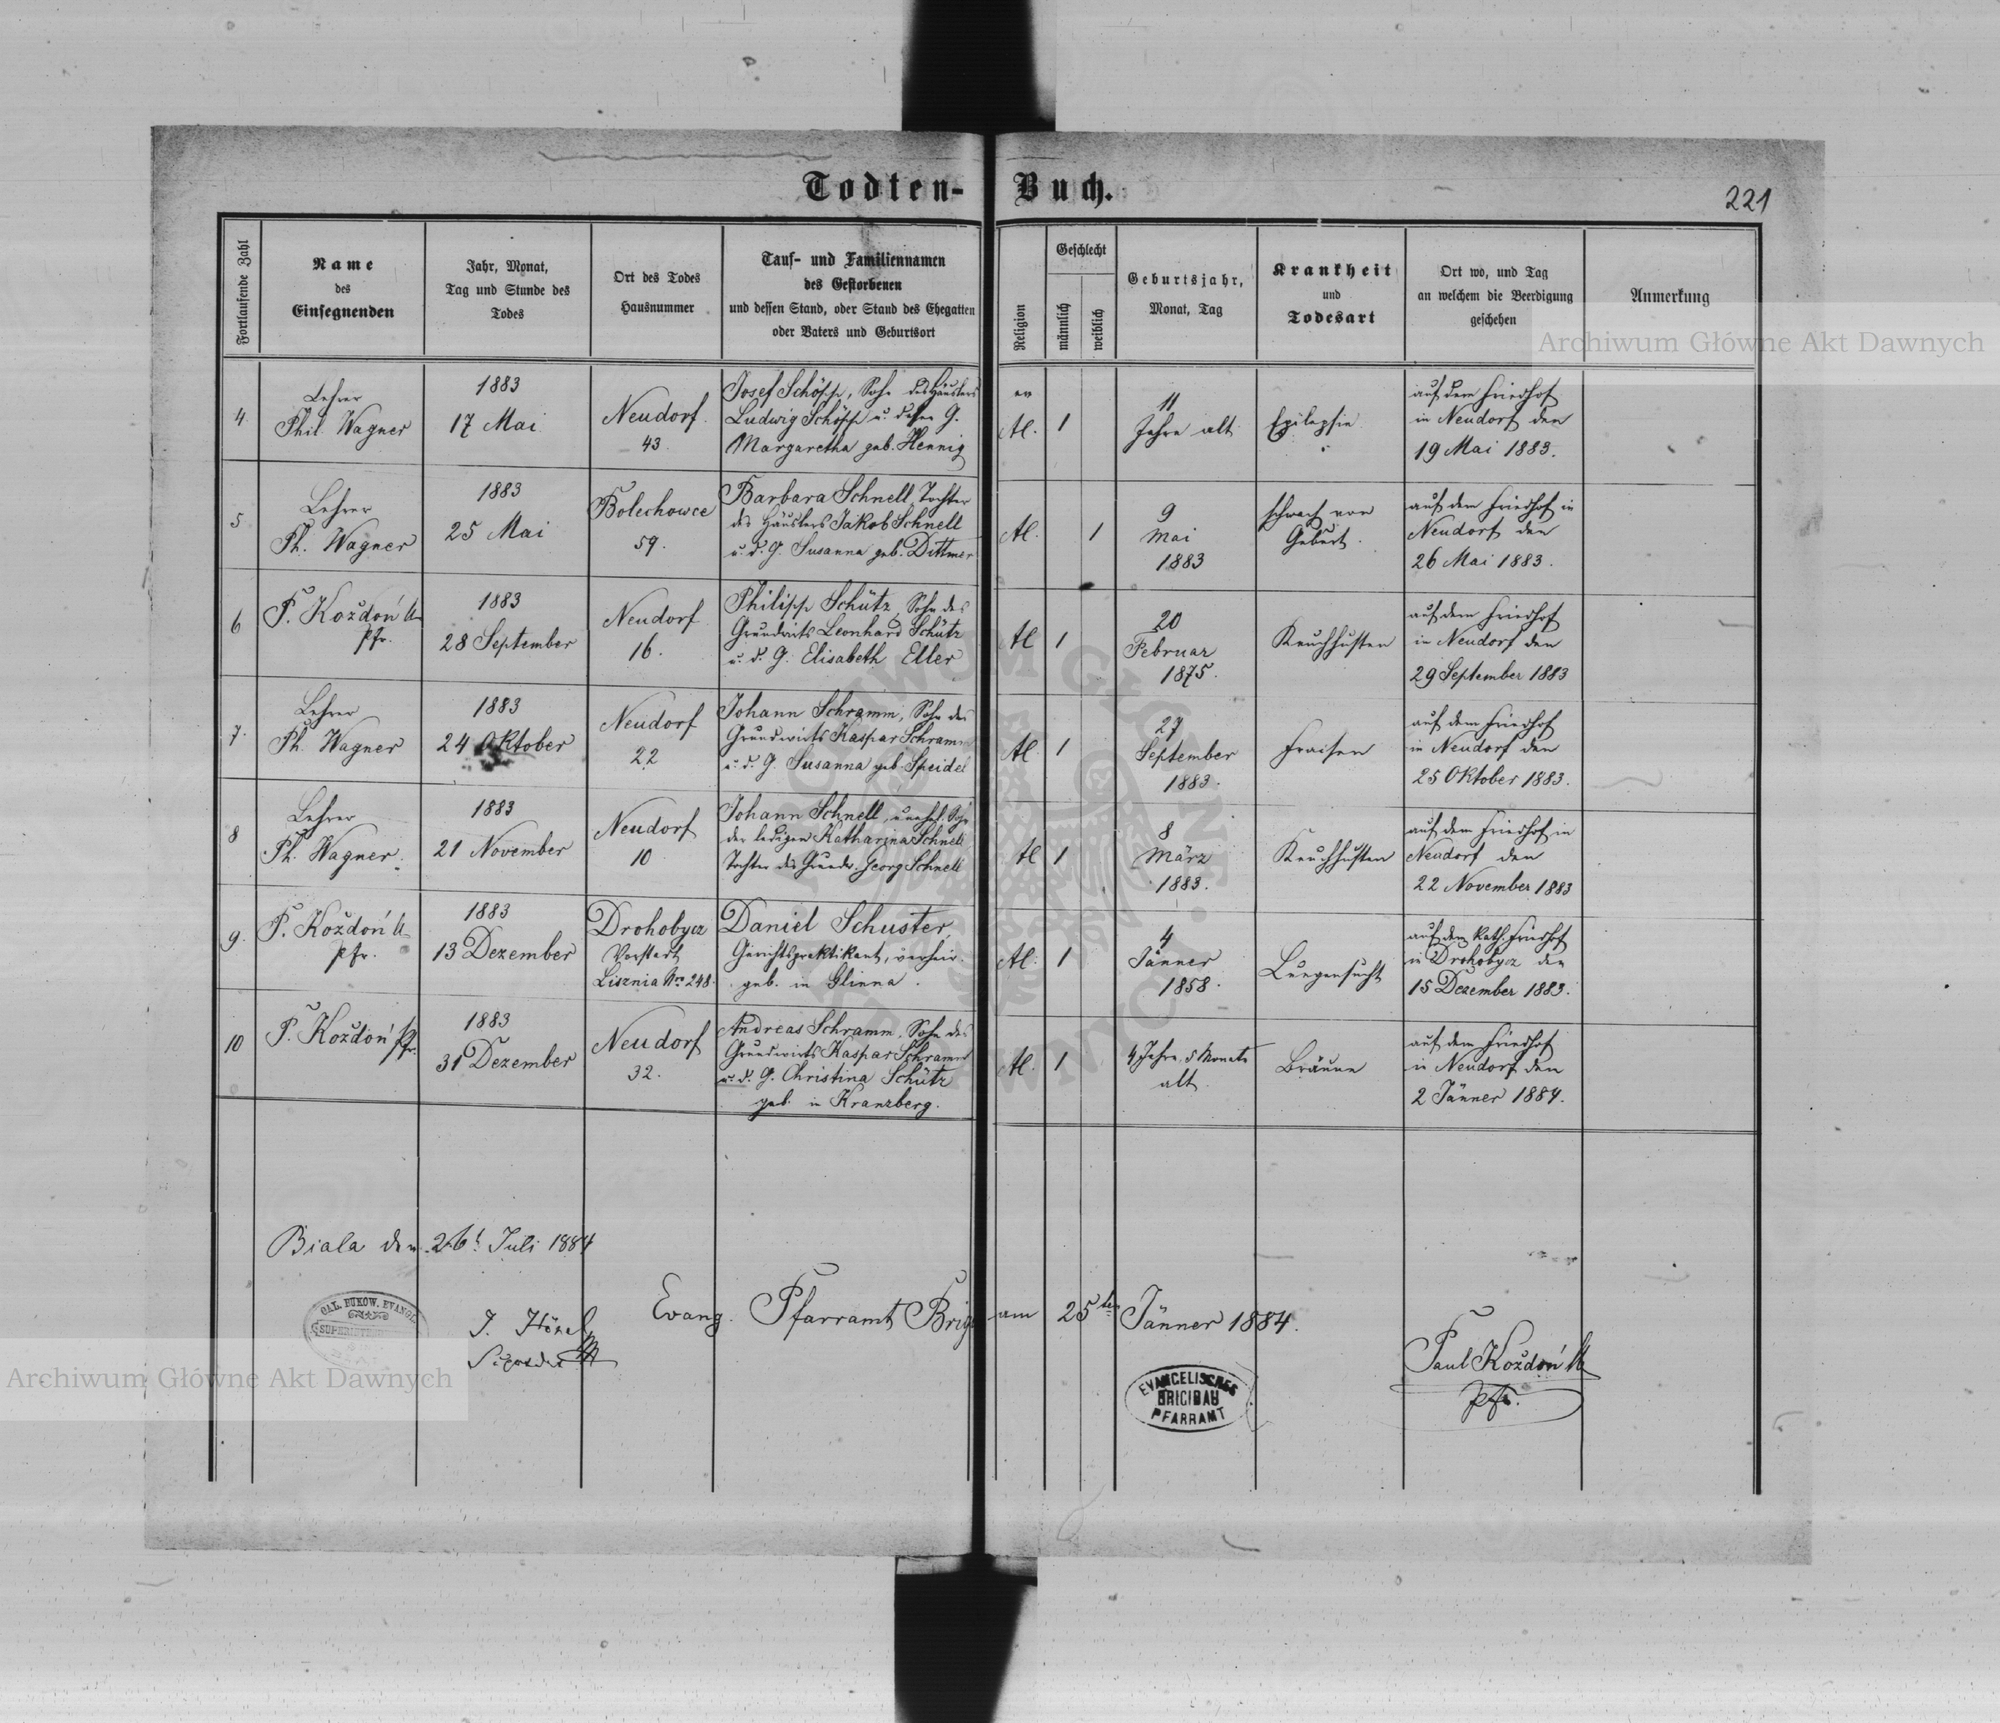 Todten-Buch.
221
Fortlaufende Zahl
Name
des
Einsegnenden
Jahr, Monat,
Tag und Stunde des
Todes
Ort des Todes
Hausnummer
Tauf- und Familiennamen
des Gestorbenen
und dessen Stand, oder Stand des Ehegatten
oder Vaters und Geburtsort
Religion
Geschlecht
männlich
weiblich
Geburtsjahr,
Monat, Tag
Krankheit
und
Todesart
Ort wo, und Tag
an welchem die Beerdigung
geschehen
Anmerkung
4
Lehrer
Phil. Wagner
1883
17 Mai
Neudorf
43.
Josef Schöpp, Sohn des Häuslers
Ludwig Schöpp u. dessen G.
Margaretha geb. Hennig
ev
AC.
1
11
Jahre alt
Epilepsie
auf dem Friedhof
in Neudorf den
19 Mai 1883.
5
Lehrer
Ph. Wagner
1883
25 Mai
Bolechowce
59.
Barbara Schnell, Tochter
des Häuslers Jakob Schnell
u. d. G. Susanna geb. Dittmer
AC.
1
9
Mai
1883
schwach von
Geburt.
auf dem Friedhof in
Neudorf den
26 Mai 1883.
6
P. Koždoń
Pfr.
1883
28 September
Neudorf
16.
Philipp Schütz, Sohn des
Grundwirts Leonhard Schütz
u. d. G. Elisabeth Eller
AC
1
20
Februar
1875.
Keuchhusten
auf dem Friedhof
in Neudorf den
29 September 1883
7.
Lehrer
Ph. Wagner
1883
24 Oktober
Neudorf
22
Johann Schramm, Sohn des
Grundwirts Kaspar Schramm
u. d. G. Susanna geb. Speidel
AC.
1
27
September
1883.
Fraisen
auf dem Friedhof
in Neudorf den
25 Oktober 1883.
8
Lehrer
Ph. Wagner.
1883
21 November
Neudorf
10
Johann Schnell, unehel. Sohn
der ledigen Katharina Schnell
Tochter des Grundw. Georg Schnell
AC
1
8
März
1883.
Keuchhusten
auf dem Friedhof in
Neudorf den
22 November 1883
9.
P. Koždoń
Pfr.
1883
13 Dezember
Drohobycz
Vorstadt
Lisznia Nr. 248.
Daniel Schuster,
Gerichtspraktikant, verheir.
geb. in Glinna.
AC.
1
4
Jänner
1858.
Lungensucht
auf dem kath. Friedhof
in Drohobycz den
15 Dezember 1883.
10
P. Koždoń Pfr.
1883
31 Dezember
Neudorf
32.
Andreas Schramm, Sohn des
Grundwirts Kaspar Schramm
u. d. G. Christina Schütz
geb. in Kranzberg.
AC.
1
4 Jahre, 5 Monate
alt.
Bräune
auf dem Friedhof
in Neudorf den
2 Jänner 1884.
Biala den 26t Juli 1884
GAL. BUKOW. EVANG.
J. Hönel
Evang. Pfarramt Brig am 25ten Jänner 1884.
Paul Koždoń
Pfr.
EVANGELISCHES
BRIGIDAU
PFARRAMT
Archiwum Główne Akt Dawnych
Archiwum Główne Akt Dawnych
ARCHIWUM GŁÓWNE AKT DAWNYCH